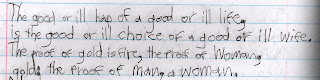 The good or ill hap of a good or ill life,
is the good or ill choice of a good or ill wife.
The proof of gold is fire, the proof of Woman,
gold; the proof of man, a woman.